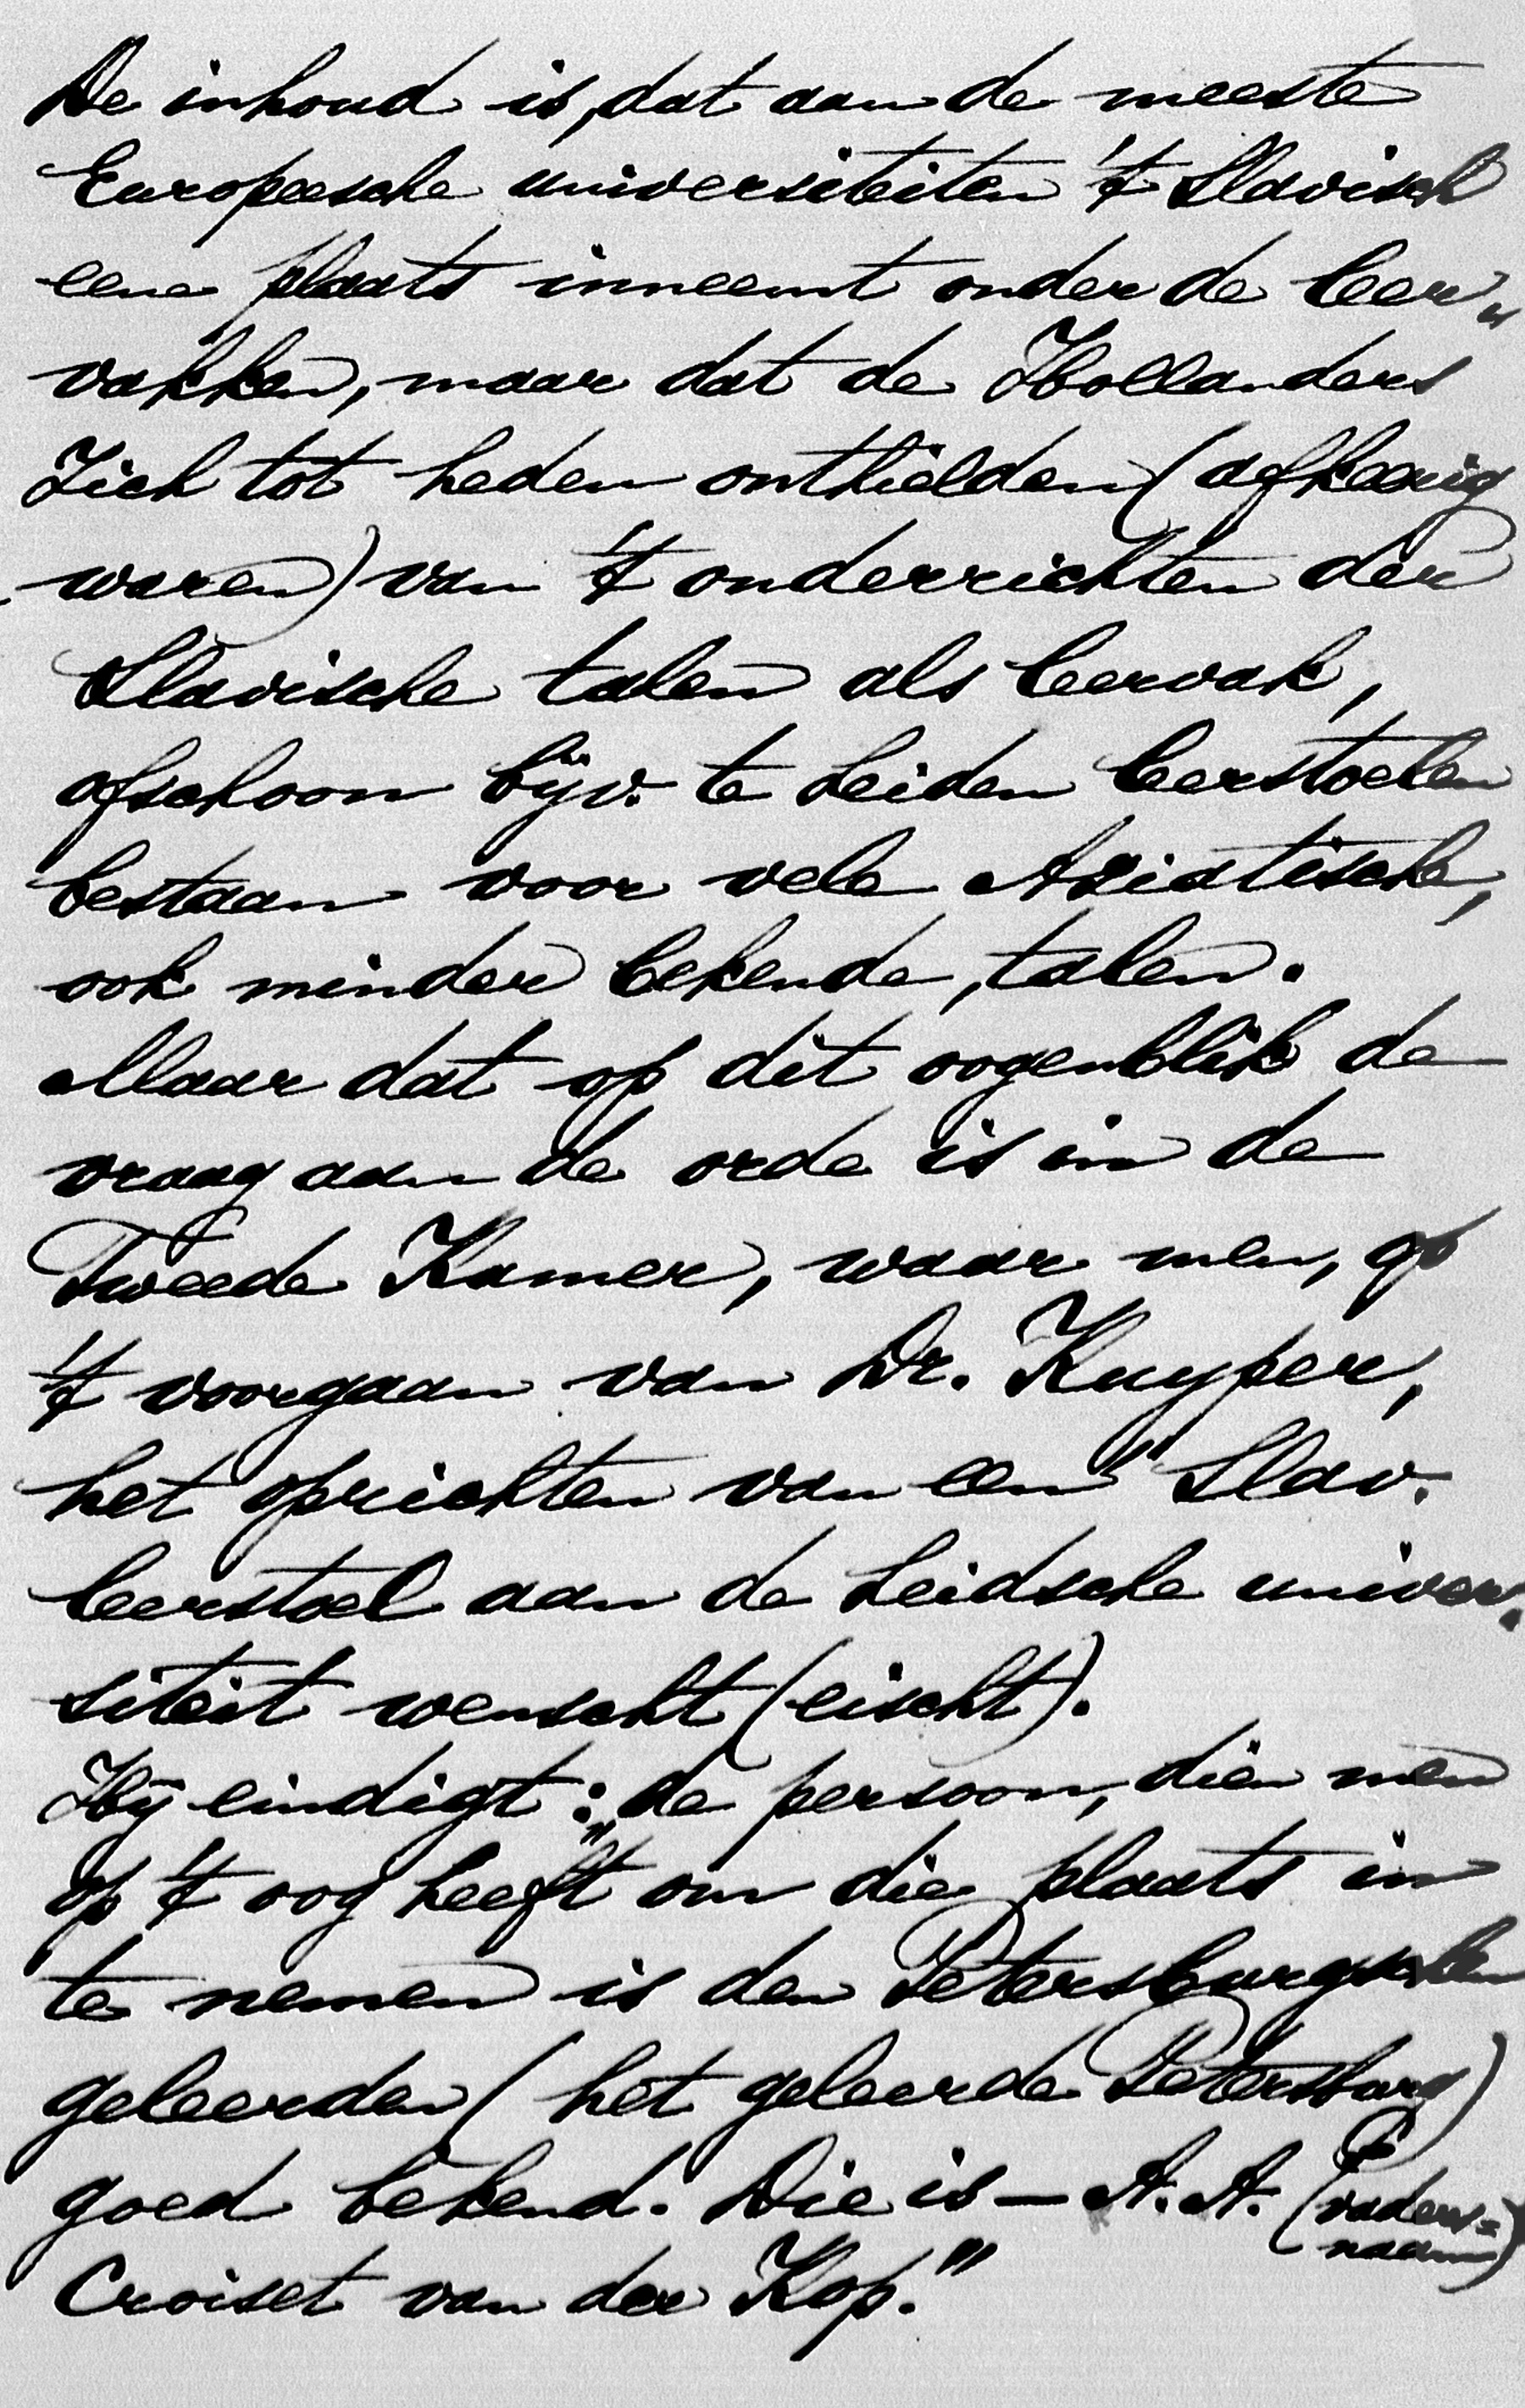 De inhoud is, dat aan de meeste
Europeesche universiteiten 't Slavisch
eene plaats inneemt onder de leer„
vakken, maar dat de Hollanders
zich tot heden onthielden (afkeerig
waren) van 't onderrichten der
Slavische talen als leervak,
ofschoon bijv. te Leiden leerstoelen
bestaan voor vele Aziatische,
ook minder bekende, talen.
Maar dat op dit oogenblik de
vraag aan de orde is in de
Tweede Kamer, waar men, op
't voorgaan van Dr. Kuyper,
het oprichten van een Slav.
leerstoel aan de Leidsche univer„
siteit wenscht (eischt).
Hij eindigt: „de persoon, dien men
op 't oog heeft om die plaats in
te nemen is den Petersburgschen
geleerden (het geleerde Petersburg)
goed bekend. Die is — A. A. (vaders=
naam)
Croiset van der Kop."